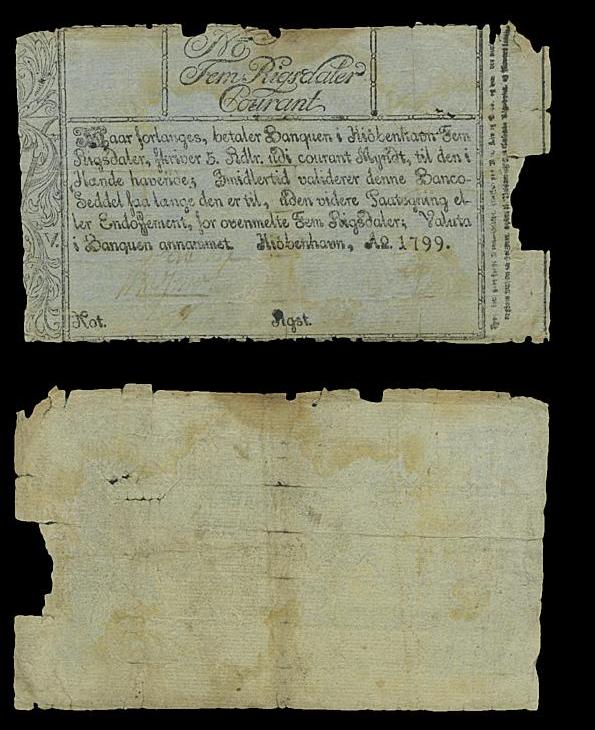 No
Fem Rigsdaler
Courant
Naar forlanges, betaler Banquen i Kiöbenhavn Fem
Rigsdaler, skriver 5. Rdlr. udi courant Myndt, til den i
Hænde havende; Imidlertid validerer denne Banco-
Seddel saa længe den er til, uden videre Paategning el-
ler Endossement, for ovenmelte Fem Rigsdaler; Valuta
i Banquen annammet. Kiöbenhavn, Ao. 1799.
V.
Not.
Rgst.